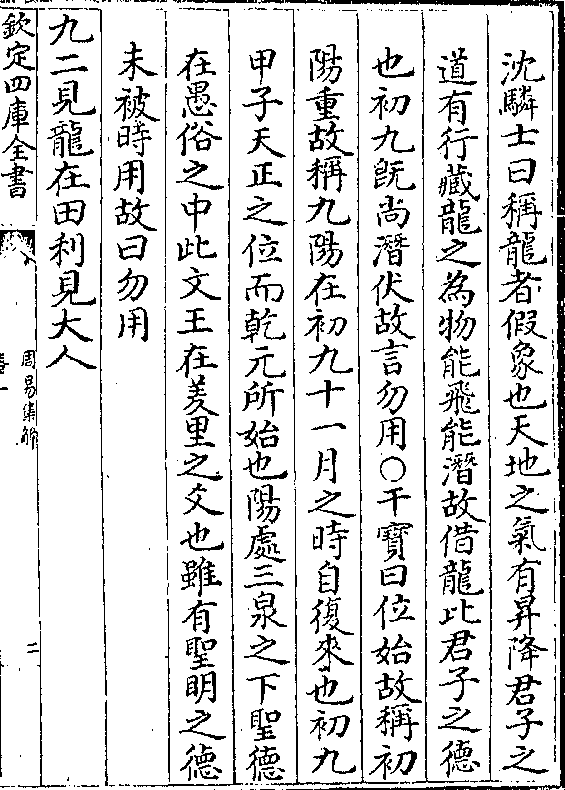 沈驎士曰稱龍者假象也天地之氣有昇降君子之
道有行藏龍之為物能飛能潛故借龍比君子之德
也初九既尚潛伏故言勿用○干寶曰位始故稱初
陽重故稱九陽在初九十一月之時自復來也初九
甲子天正之位而乾元所始也陽處三泉之下聖德
在愚俗之中此文王在羑里之爻也雖有聖明之德
未被時用故曰勿用
九二見龍在田利見大人
欽定四庫全書
周易集解
卷一
二